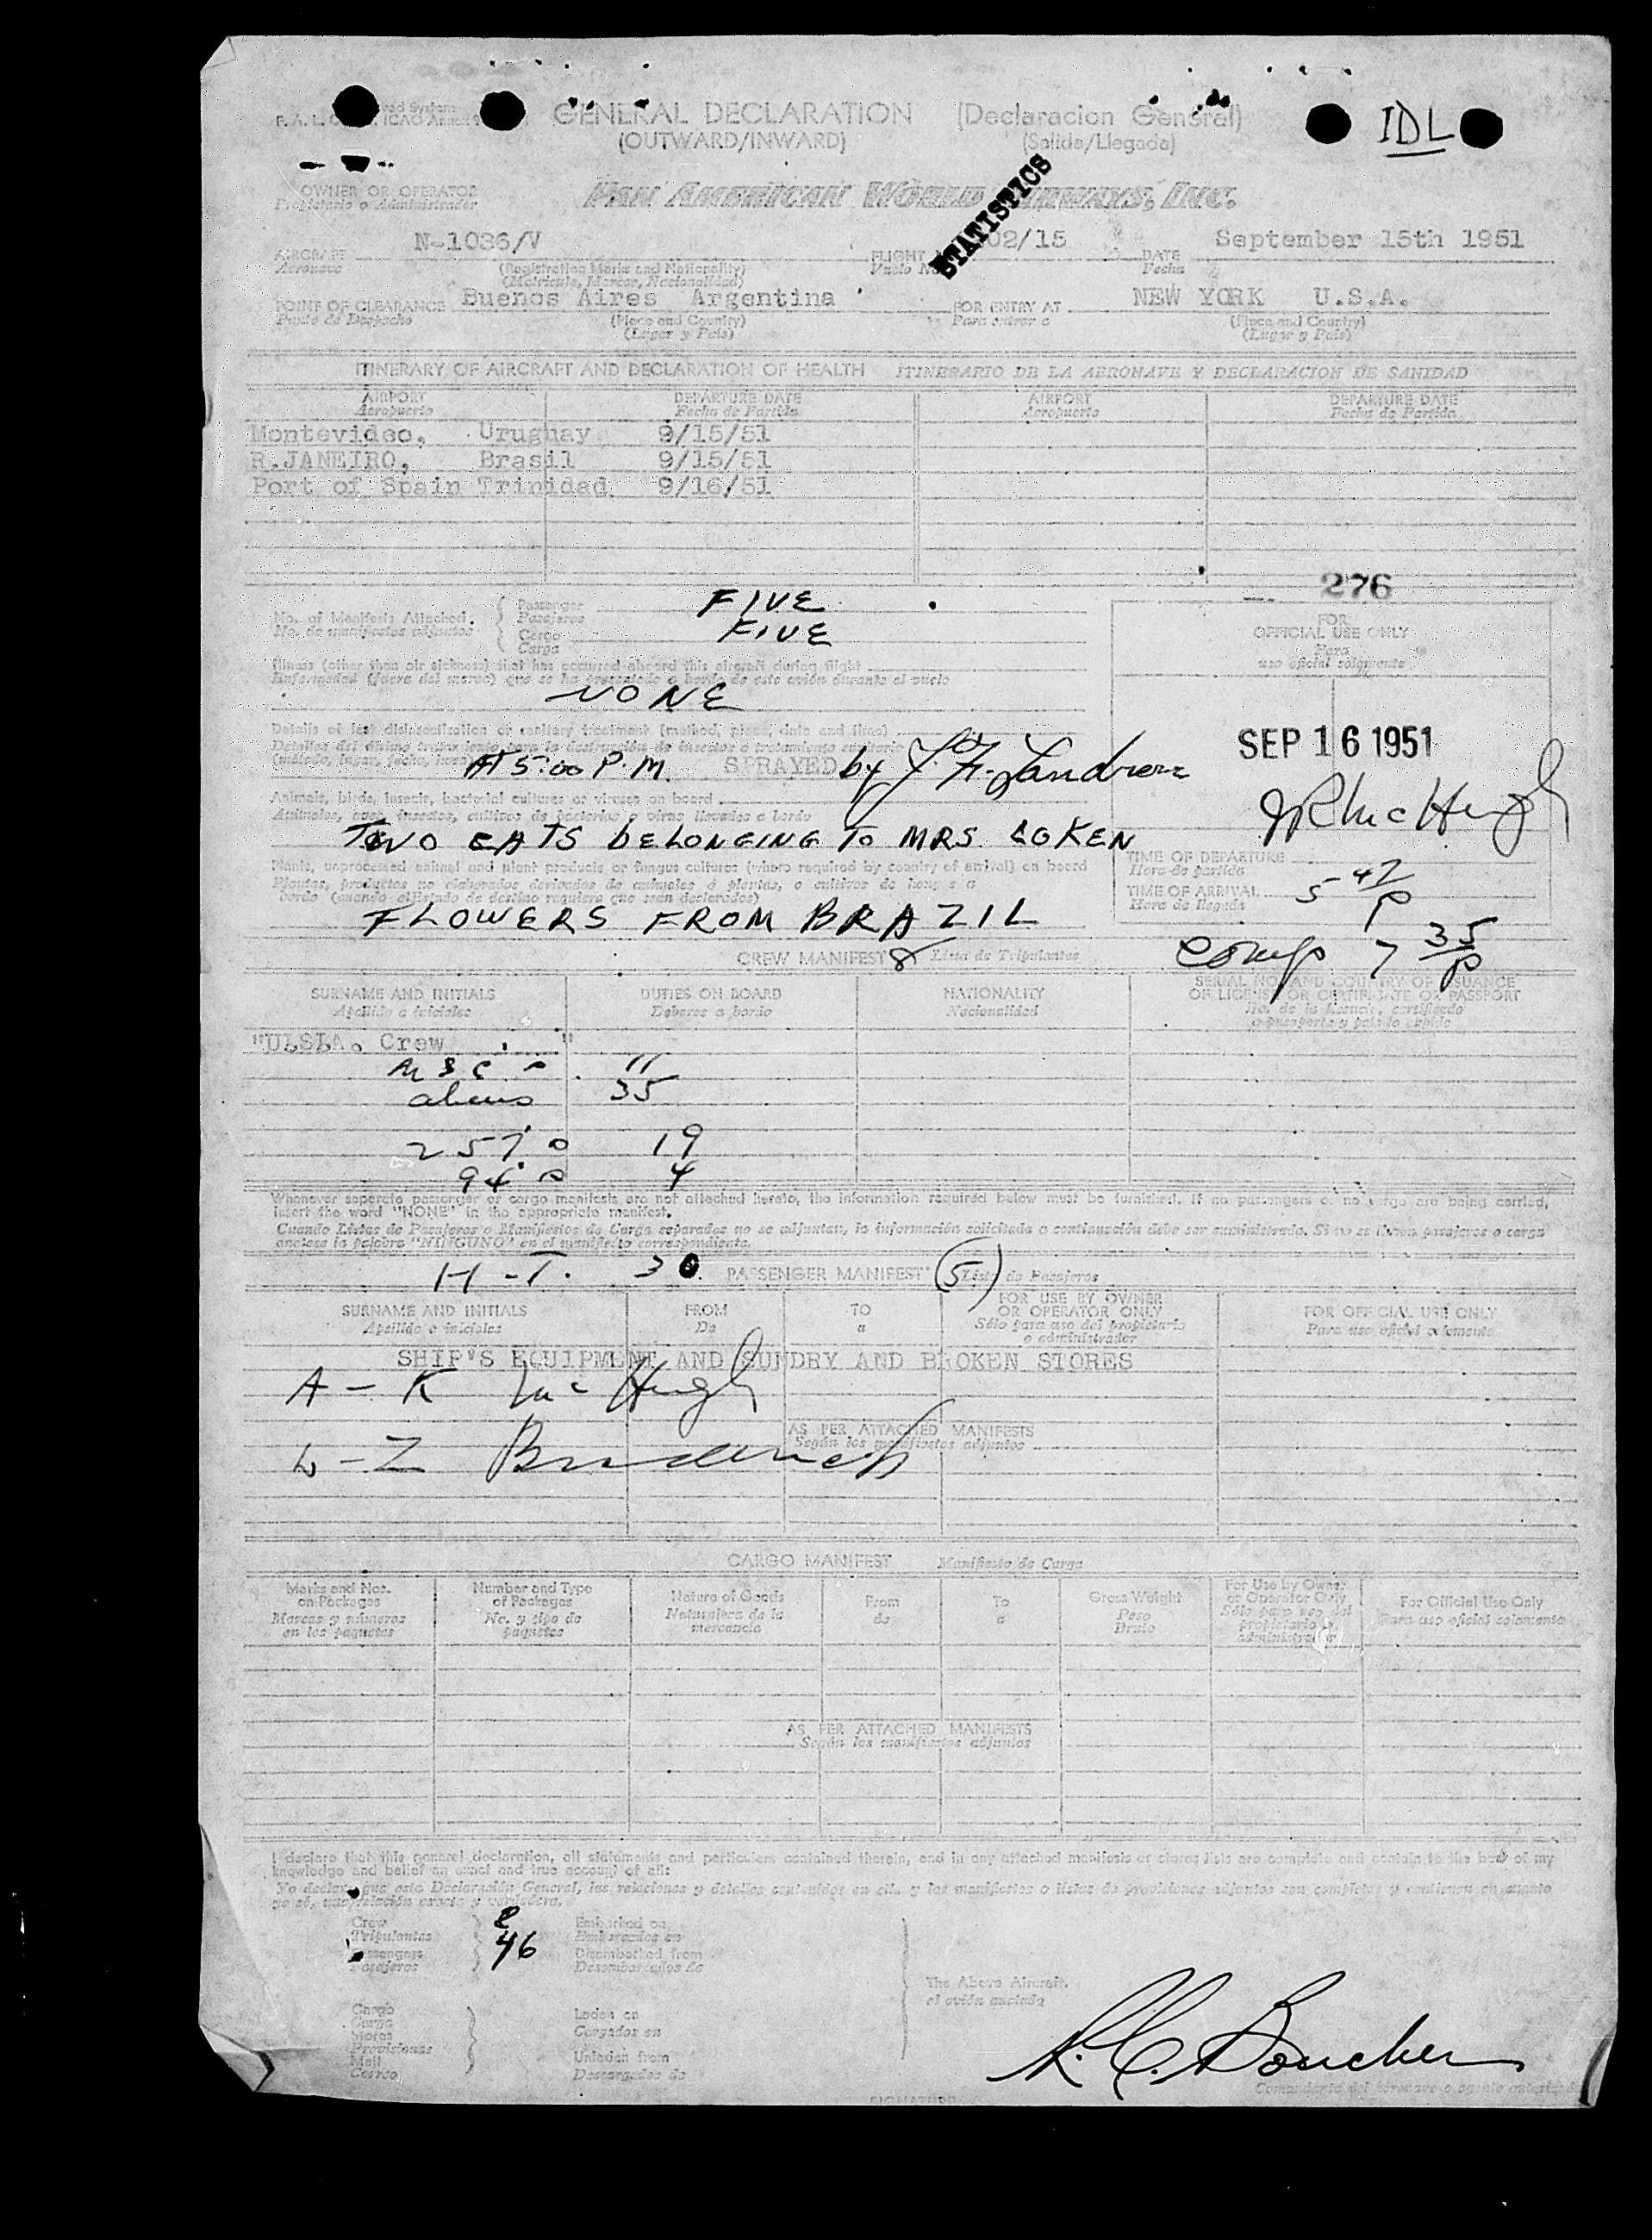 GENERAL DECLARATION (Declaracion General)
(OUTWARD/INWARD) (Salida/Llegada)
IDL
STATISTICS
OWNER OR OPERATOR
Propietario o Administrador
PAN AMERICAN WORLD AIRWAYS, INC.
AIRCRAFT N-1036/V FLIGHT 02/15 DATE September 15th 1951
Aeronave (Registration Marks and Nationality) Vuelo No. Fecha
(Matricula, Marcas, Nacionalidad)
POINT OF CLEARANCE Buenos Aires Argentina FOR ENTRY AT NEW YORK U.S.A.
Punto de Despacho (Place and Country) Para entrar a (Place and Country)
(Lugar y Pais) (Lugar y Pais)
ITINERARY OF AIRCRAFT AND DECLARATION OF HEALTH ITINERARIO DE LA AERONAVE Y DECLARACION DE SANIDAD
AIRPORT DEPARTURE DATE AIRPORT DEPARTURE DATE
Aeropuerto Fecha de Partida Aeropuerto Fecha de Partida
Montevideo, Uruguay 9/15/51
R.JANEIRO, Brasil 9/15/51
Port of Spain Trinidad 9/16/51
276
No. of Manifests Attached. Passenger FIVE
No. de manifiestos adjuntos Pasajeros
Cargo FIVE
Carga
FOR
OFFICIAL USE ONLY
Para
uso oficial solamente
Illness (other than air sickness) that has occurred aboard this aircraft during flight
Enfermedad (fuera del mareo) que se ha presentado a bordo de este avión durante el vuelo
NONE
Details of last disinsectization or sanitary treatment (method, place, date and time)
Detalles del último tratamiento para la destrucción de insectos o tratamiento sanitario
(método, lugar, fecha, hora)
AT 5:00 P.M. SPRAYED by
SEP 16 1951
JR McHugh
Animals, birds, insects, bacterial cultures or viruses on board
Animales, aves, insectos, cultivos de bacterias o virus llevados a bordo
TWO CATS BELONGING TO MRS. COKEN
Plants, unprocessed animal and plant products or fungus cultures (where required by country of arrival) on board
Plantas, productos no elaborados derivados de animales ó plantas, o cultivos de hongos a
bordo (cuando el Estado de destino requiere que sean declarados)
FLOWERS FROM BRAZIL
TIME OF DEPARTURE
Hora de partida
TIME OF ARRIVAL 5 47/P
Hora de llegada
Comp 7 35/P
CREW MANIFEST 8 Lista de Tripulantes
SURNAME AND INITIALS DUTIES ON BOARD NATIONALITY SERIAL NO. AND COUNTRY OF ISSUANCE
OF LICENSE OR CERTIFICATE OR PASSPORT
Apellido e iniciales Deberes a bordo Nacionalidad No. de la licencia, certificado
o pasaporte y pais lo expide
"U.S.A. Crew "
11
aliens 35
257 0 19
94 0 4
Whenever separate passenger or cargo manifests are not attached hereto, the information required below must be furnished. If no passengers or no cargo are being carried,
insert the word "NONE" in the appropriate manifest.
Cuando Listas de Pasajeros o Manifiestos de Carga separados no se adjuntan, la información solicitada a continuación debe ser suministrada. Si no se llevan pasajeros o carga
anótese la palabra "NINGUNO" en el manifiesto correspondiente.
H-T. 30 PASSENGER MANIFEST 5 Lista de Pasajeros
SURNAME AND INITIALS FROM TO FOR USE BY OWNER OR OPERATOR ONLY FOR OFFICIAL USE ONLY
Apellido e iniciales De a Sólo para uso del propietario o administrador Para uso oficial solamente
SHIP'S EQUIPMENT AND SUNDRY AND BROKEN STORES
A - K McHugh
AS PER ATTACHED MANIFESTS
Según los manifiestos adjuntos
L - Z
CARGO MANIFEST Manifiesto de Carga
Marks and Nos. on Packages Number and Type of Packages Nature of Goods From To Gross Weight For Use by Owner or Operator Only For Official Use Only
Marcas y números en los paquetes No. y tipo de paquetes Naturaleza de la mercancia de a Peso Bruto Sólo para uso del propietario o administrador Para uso oficial solamente
AS PER ATTACHED MANIFESTS
Según los manifiestos adjuntos
I declare that this general declaration, all statements and particulars contained therein, and in any attached manifests or stores lists are complete and contain to the best of my
knowledge and belief an exact and true account of all:
Yo declaro que esta Declaración General, las relaciones y detalles contenidos en ella y los manifiestos o listas de provisiones adjuntos son completos y contienen en cuanto
yo sé, una relación exacta y verdadera.
Crew 8 Embarked on
Tripulantes Embarcados en
Passengers 46 Disembarked from
Pasajeros Desembarcados de
The Above Aircraft.
el avión anciado
Cargo Laden on
Carga Cargados en
Stores
Provisiones
Mail Unladen from
Correo Descargados de
R.C. Boucher
SIGNATURE